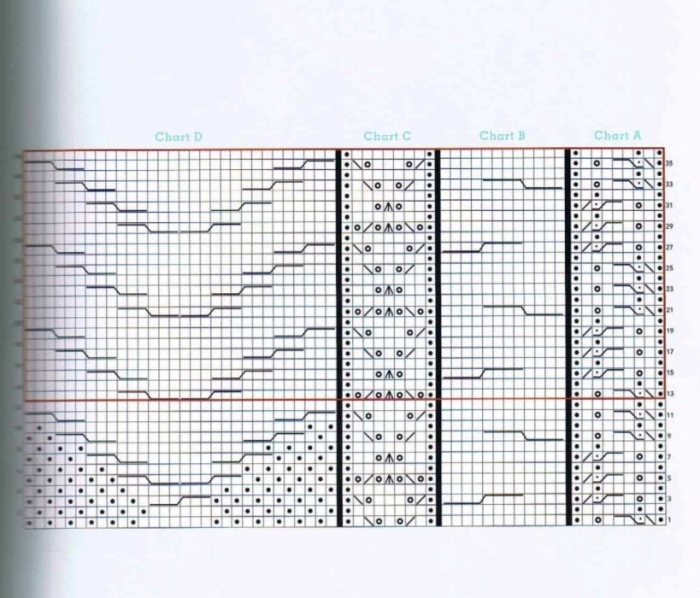 Chart D Chart C Chart B Chart A
35
33
31
29
27
25
23
21
19
17
15
13
11
9
7
5
3
1